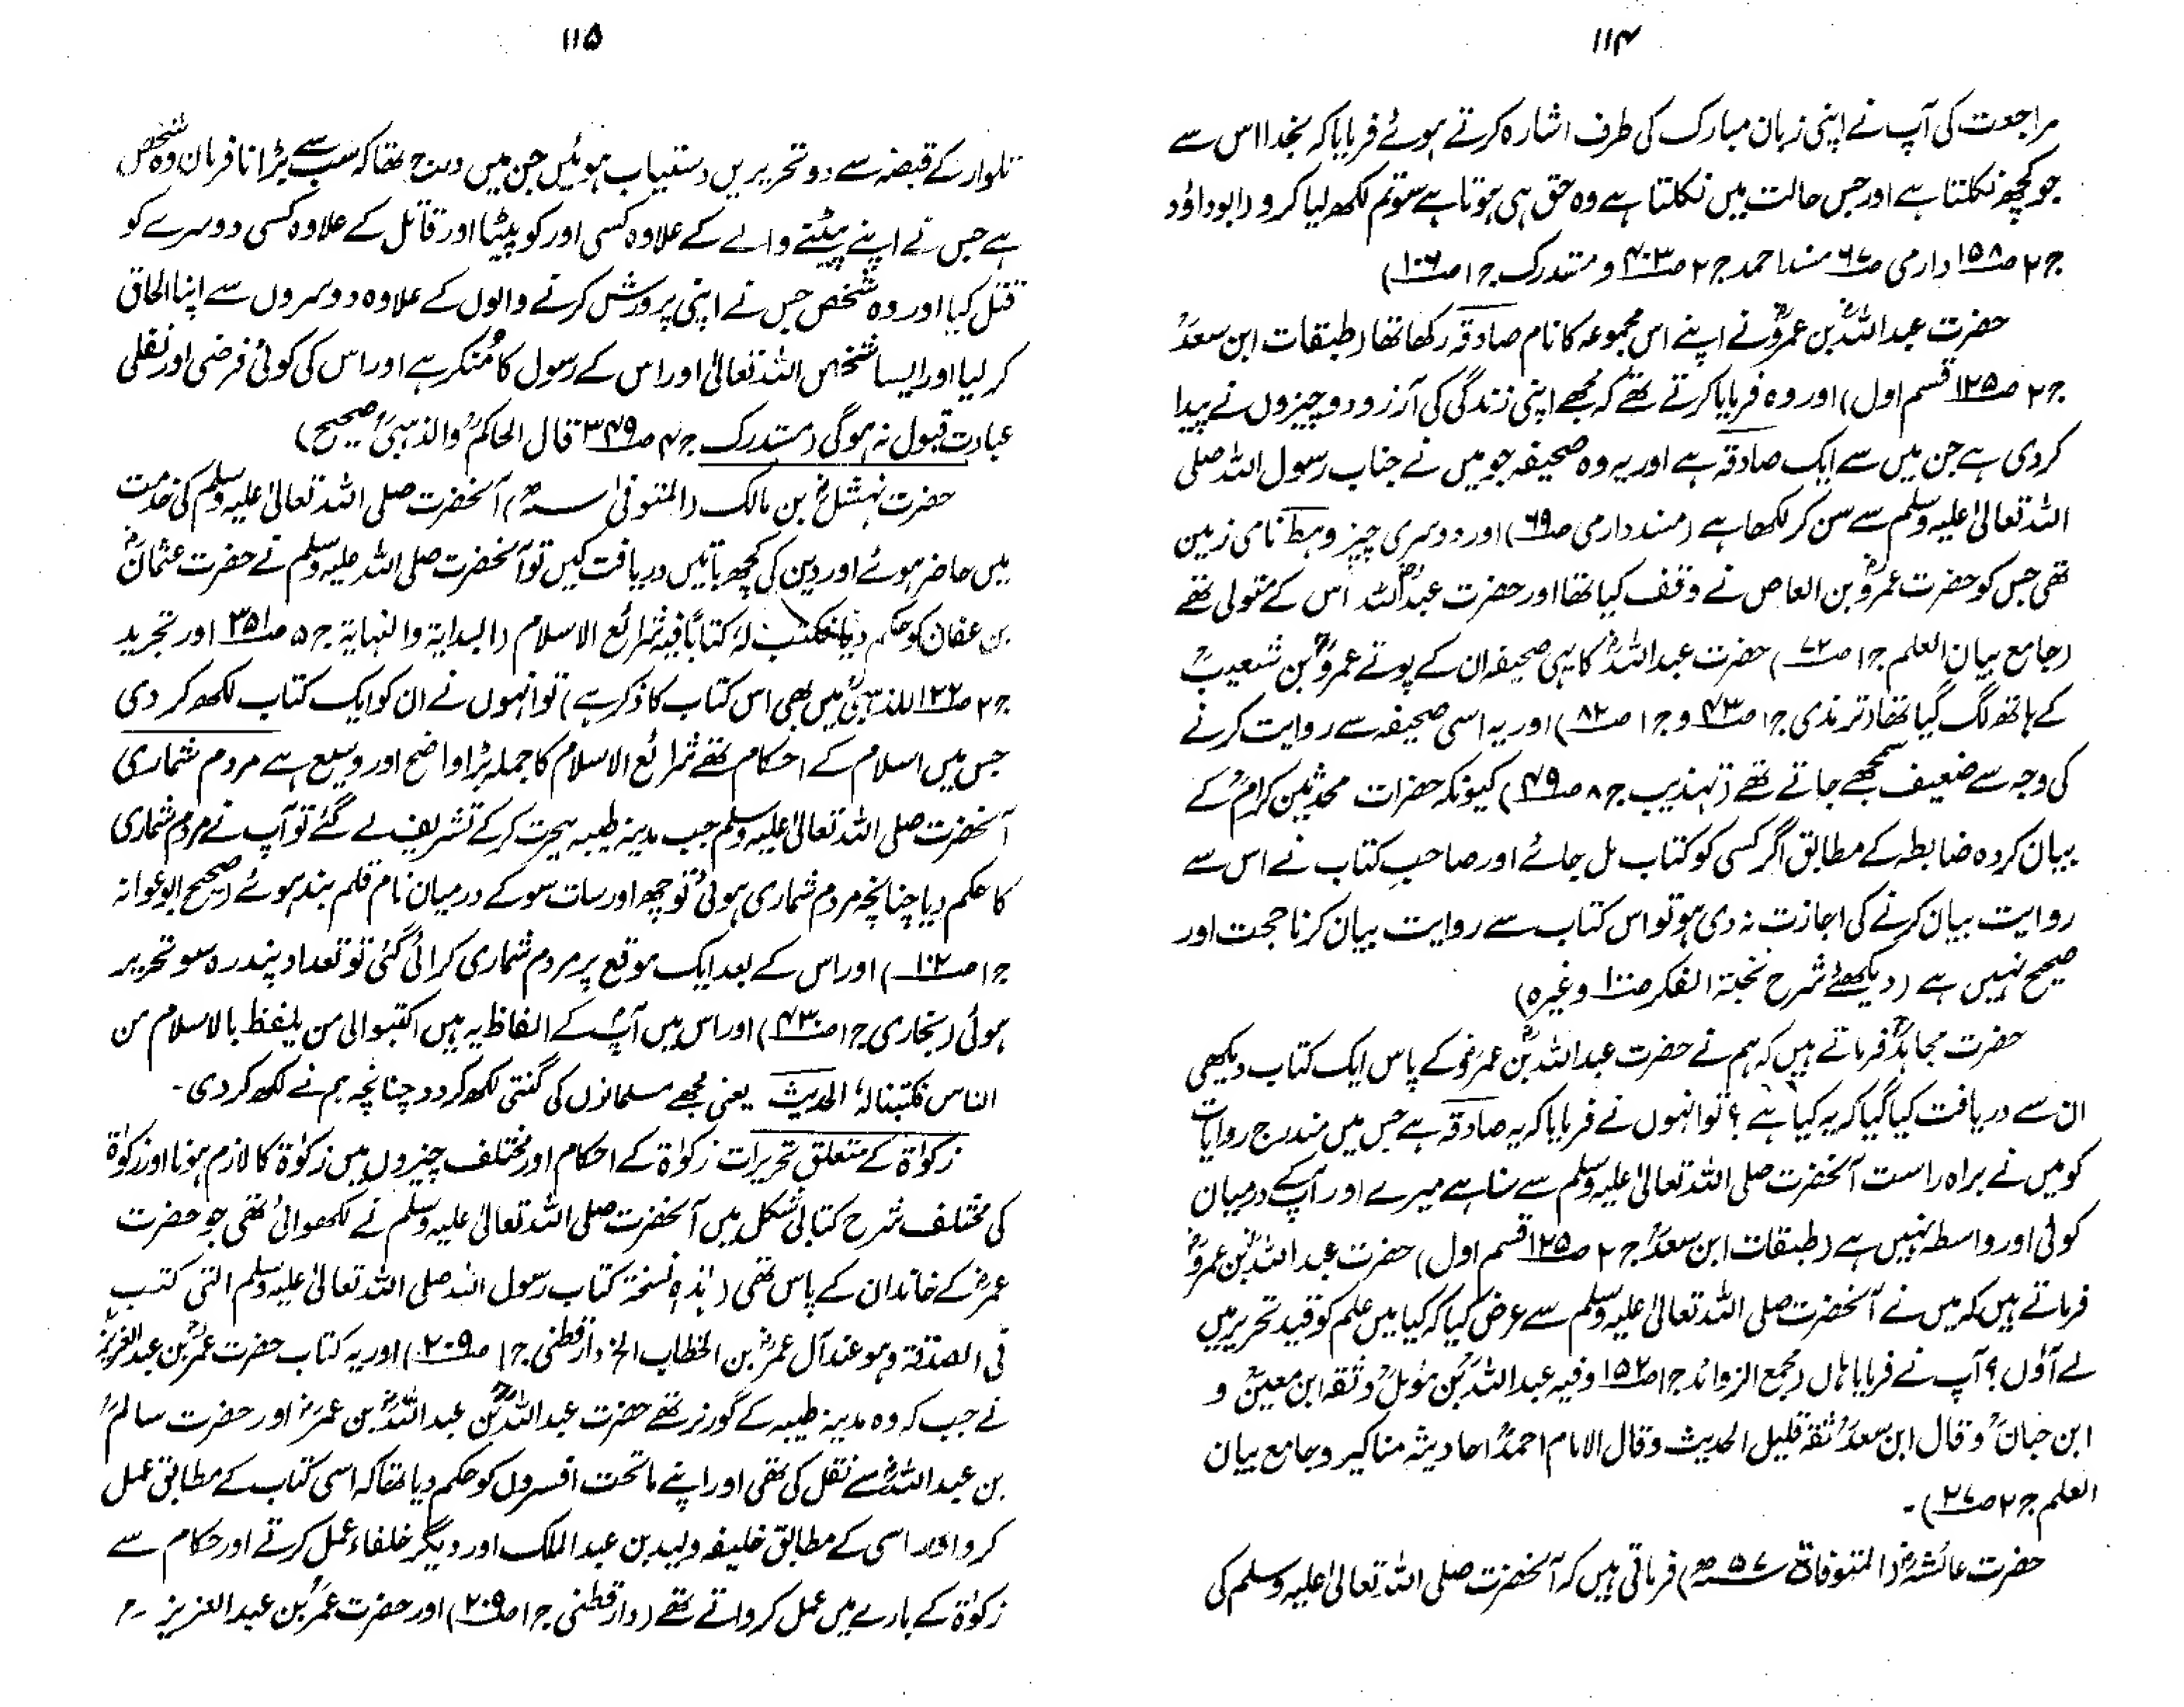 ۱۱۴
مراجعت کی آپ نے اپنی زبان مبارک کی طرف اشارہ کرتے ہوئے فرمایا کہ بخدا اس سے
جو کچھ نکلتا ہے اور جس حالت میں نکلتا ہے وہ حق ہی ہوتا ہے سو تم لکھ لیا کرو (ابوداؤد
ج۲ ص۱۵۸ دارمی ص۶۷ مسند احمد ج۲ ص۴۰۳ و مستدرک ج۱ ص۱۰۶)
حضرت عبداللہؓ بن عمروؓ نے اپنے اس مجموعہ کا نام صادقہ رکھا تھا (طبقات ابن سعدؒ
ج۲ ص۱۲۵ قسم اول) اور وہ فرمایا کرتے تھے کہ مجھے اپنی زندگی کی آرزو دو چیزوں نے پیدا
کر دی ہے جن میں سے ایک صادقہ ہے اور یہ وہ صحیفہ جو میں نے جناب رسول اللہ صلی
اللہ تعالیٰ علیہ وسلم سے سن کر لکھا ہے (مسند دارمی ص۶۹) اور دوسری چیز وہط نامی زمین
تھی جس کو حضرت عمروؓ بن العاص نے وقف کیا تھا اور حضرت عبداللہؓ اس کے متولی تھے
(جامع بیان العلم ج۱ ص۷۲) حضرت عبداللہؓ کا یہی صحیفہ ان کے پوتے عمروؒ بن شعیبؒ
کے ہاتھ لگ گیا تھا (ترمذی ج۱ ص۴۳ و ج۱ ص۸۲) اور یہ اسی صحیفہ سے روایت کرنے
کی وجہ سے ضعیف سمجھے جاتے تھے (تہذیب ج۸ ص۴۹) کیونکہ حضرات محدثین کرامؒ کے
بیان کردہ ضابطہ کے مطابق اگر کسی کو کتاب مل جائے اور صاحبِ کتاب نے اس سے
روایت بیان کرنے کی اجازت نہ دی ہو تو اس کتاب سے روایت بیان کرنا حجت اور
صحیح نہیں ہے (دیکھئے شرح نخبۃ الفکر ص۱۰۰ وغیرہ)
حضرت مجاہدؒ فرماتے ہیں کہ ہم نے حضرت عبداللہؓ بن عمروؓ کے پاس ایک کتاب دیکھی
ان سے دریافت کیا گیا کہ یہ کیا ہے؟ تو انہوں نے فرمایا کہ یہ صادقہ ہے جس میں مندرج روایات
کو میں نے براہ راست آنحضرت صلی اللہ تعالیٰ علیہ وسلم سے سنا ہے میرے اور آپؐ کے درمیان
کوئی اور واسطہ نہیں ہے (طبقات ابن سعدؒ ج۲ ص۱۲۵ قسم اول) حضرت عبداللہؓ بن عمروؓ
فرماتے ہیں کہ میں نے آنحضرت صلی اللہ تعالیٰ علیہ وسلم سے عرض کیا کہ کیا میں علم کو قید تحریر میں
لے آؤں؟ آپ نے فرمایا ہاں (مجمع الزوائد ج۱ ص۱۵۲ وفیہ عبداللہؒ بن مؤملؒ وثقہ ابن معینؒ و
ابن حبانؒ وقال ابن سعدؒ ثقۃ قلیل الحدیث وقال الامام احمدؒ احادیثہ مناکیر وجامع بیان
العلم ج۲ ص۲۷)۔
حضرت عائشہؓ (المتوفاۃ ۵۷ھ) فرماتی ہیں کہ آنحضرت صلی اللہ تعالیٰ علیہ وسلم کی
۱۱۵
تلوار کے قبضہ سے دو تحریریں دستیاب ہوئیں جن میں درج تھا کہ سب سے بڑا نافرمان وہ شخص
ہے جس نے اپنے پیٹنے والے کے علاوہ کسی اور کو پیٹا اور قاتل کے علاوہ کسی دوسرے کو
قتل کیا اور وہ شخص جس نے اپنی پرورش کرنے والوں کے علاوہ دوسروں سے اپنا الحاق
کر لیا اور ایسا شخص اللہ تعالیٰ اور اس کے رسول کا مُنکر ہے اور اس کی کوئی فرضی اور نفلی
عبادت قبول نہ ہوگی (مستدرک ج۴ ص۳۴۹ قال الحاکمؒ والذہبیؒ صحیح)
حضرت نہشلؓ بن مالک (المتوفیٰ سنہ ھ) آنحضرت صلی اللہ تعالیٰ علیہ وسلم کی خدمت
میں حاضر ہوئے اور دین کی کچھ باتیں دریافت کیں تو آنحضرت صلی اللہ علیہ وسلم نے حضرت عثمانؓ
بن عفان کو حکم دیا فکتب لہٗ کتاباً فیہ شرائع الاسلام (البدایۃ والنہایۃ ج۵ ص۳۵۱ اور تجرید
ج۲ ص۱۲۲ للذہبیؒ میں بھی اس کتاب کا ذکر ہے) تو انہوں نے ان کو ایک کتاب لکھ کر دی
جس میں اسلام کے احکام تھے شرائع الاسلام کا جملہ بڑا واضح اور وسیع ہے مردم شماری
آنحضرت صلی اللہ تعالیٰ علیہ وسلم جب مدینہ طیبہ ہجرت کر کے تشریف لے گئے تو آپ نے مردم شماری
کا حکم دیا چنانچہ مردم شماری ہوئی تو چھ اور سات سو کے درمیان نام قلم بند ہوئے (صحیح ابوعوانہ
ج۱ ص۱۰۲) اور اس کے بعد ایک موقع پر مردم شماری کرائی گئی تو تعداد پندرہ سو تحریر
ہوئی (بخاری ج۱ ص۴۳۰) اور اس میں آپؐ کے الفاظ یہ ہیں اکتبوا لی من یلفظ بالاسلام من
الناس فکتبنا لہٗ الحدیث یعنی مجھے مسلمانوں کی گنتی لکھ کر دو چنانچہ ہم نے لکھ کر دی۔
زکوٰۃ کے متعلق تحریرات زکوٰۃ کے احکام اور مختلف چیزوں میں زکوٰۃ کا لازم ہونا اور زکوٰۃ
کی مختلف شرح کتابی شکل میں آنحضرت صلی اللہ تعالیٰ علیہ وسلم نے لکھوائی تھی جو حضرت
عمرؓ کے خاندان کے پاس تھی (ہذہ نسخۃ کتاب رسول اللہ صلی اللہ تعالیٰ علیہ وسلم التی کتب
فی الصدقۃ وہو عند آل عمرؓ بن الخطاب الخ دارقطنی ج۱ ص۲۰۹) اور یہ کتاب حضرت عمرؒ بن عبدالعزیزؒ
نے جب کہ وہ مدینہ طیبہ کے گورنر تھے حضرت عبداللہؒ بن عبداللہؓ بن عمرؓ اور حضرت سالمؒ
بن عبداللہؓ سے نقل کی تھی اور اپنے ماتحت افسروں کو حکم دیا تھا کہ اسی کتاب کے مطابق عمل
کرو اور اسی کے مطابق خلیفہ ولید بن عبدالملک اور دیگر خلفاء عمل کرتے اور حکام سے
زکوٰۃ کے بارے میں عمل کرواتے تھے (دارقطنی ج۱ ص۲۰۹) اور حضرت عمرؒ بن عبدالعزیز